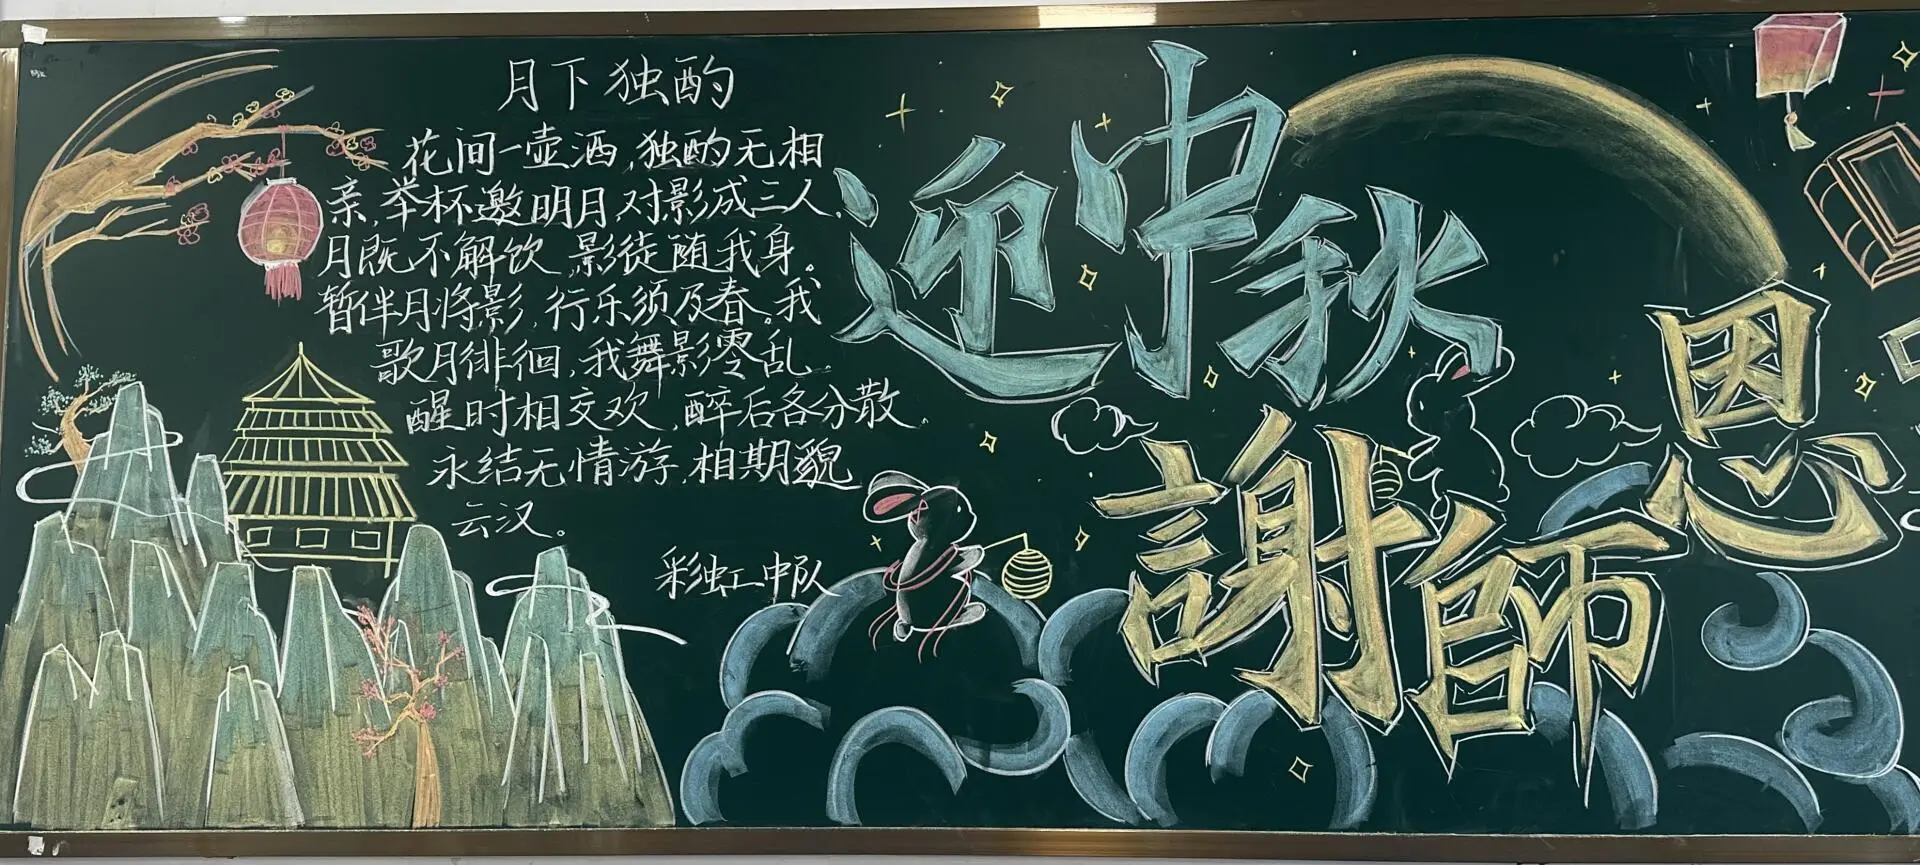 月下独酌
花间一壶酒,独酌无相
亲,举杯邀明月,对影成三人,
月既不解饮,影徒随我身。
暂伴月将影,行乐须及春。我
歌月徘徊,我舞影零乱
醒时相交欢,醉后各分散。
永结无情游,相期貌
云汉。
彩虹中队
迎中秋
謝師恩